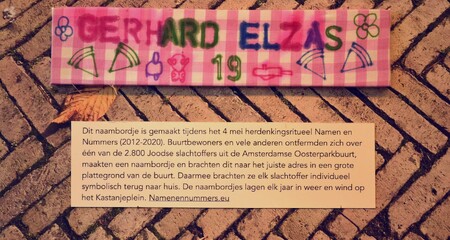 GERHARD ELZAS
19
Dit naambordje is gemaakt tijdens het 4 mei herdenkingsritueel Namen en
Nummers (2012-2020). Buurtbewoners en vele anderen ontfermden zich over
één van de 2.800 Joodse slachtoffers uit de Amsterdamse Oosterparkbuurt,
maakten een naambordje en brachten dit naar het juiste adres in een grote
plattegrond van de buurt. Daarmee brachten ze elk slachtoffer individueel
symbolisch terug naar huis. De naambordjes lagen elk jaar in weer en wind op
het Kastanjeplein. Namenennummers.eu